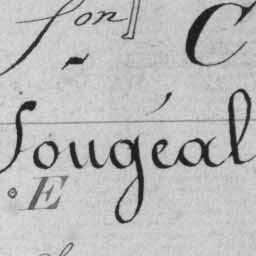 son C
Sougéal
E